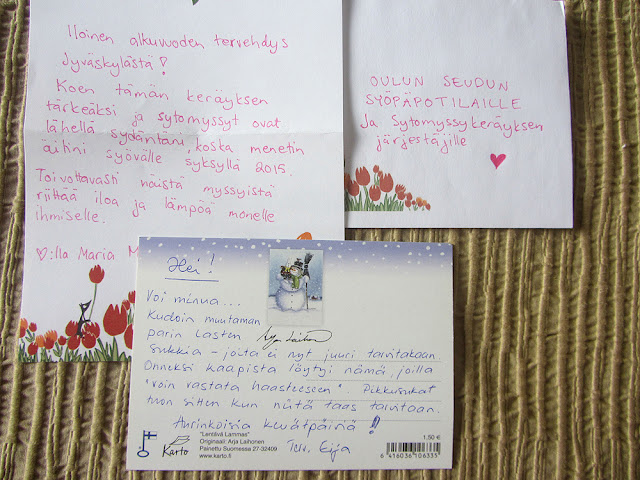 Iloinen alkuvuoden tervehdys
Jyväskylästä!
Koen tämän keräyksen
tärkeäksi ja sytomyssyt ovat
lähellä sydäntäni, koska menetin
äitini syövälle syksyllä 2015.
Toivottavasti näistä myssyistä
riittää iloa ja lämpöä monelle
ihmiselle.
♡:lla Maria M
OULUN SEUDUN
SYÖPÄPOTILAILLE
Ja Sytomyssykeräyksen
järjestäjille
Hei!
Voi minua...
Kudoin muutaman
parin lasten
sukkia – joita ei nyt juuri tarvitakaan.
Onneksi kaapista löytyi nämä, joilla
"voin vastata haasteeseen". Pikkusukat
tuon sitten kun niitä taas tarvitaan.
Aurinkoisia kevätpäiviä!
Terv. Eija
Karto
"Lentävä Lammas"
Originaali: Arja Laihonen
Painettu Suomessa 27-32409
www.karto.fi
1,50 €
6 416036 106335